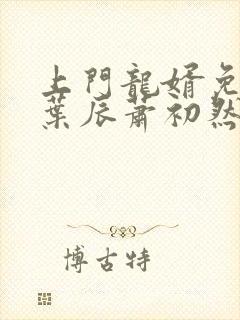 上門龍婿免
葉辰蕭初然
博古特